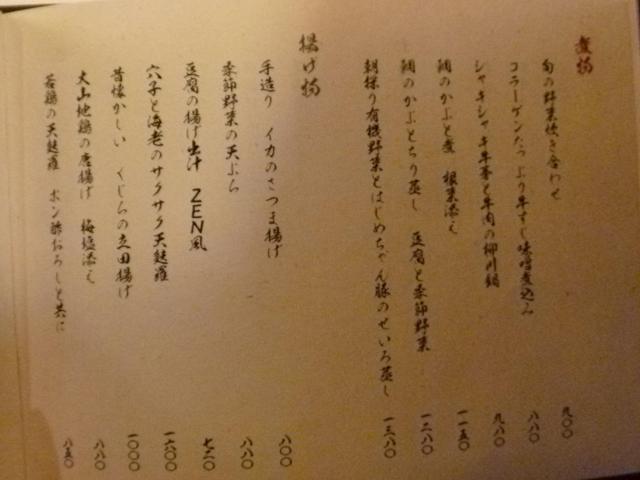 煮物
旬の野菜炊き合わせ 九〇〇
コラーゲンたっぷり牛すじ味噌煮込み 八八〇
シャキシャキ牛蒡と牛肉の柳川鍋 九八〇
鯛のかぶと煮 根菜添え 一一五〇
鯛のかぶとちり蒸し 豆腐と季節野菜 一二八〇
朝採り有機野菜とはじめちゃん豚のせいろ蒸し 一三八〇
揚げ物
手造り イカのさつま揚げ 八〇〇
季節野菜の天ぷら 八八〇
豆腐の揚げ出汁 ZEN風 七二〇
穴子と海老のサクサク天麩羅 一六〇〇
昔懐かしい くじらの立田揚げ 一〇〇〇
大山地鶏の唐揚げ 梅塩添え 八八〇
若鶏の天麩羅 ポン酢おろしと共に 八五〇